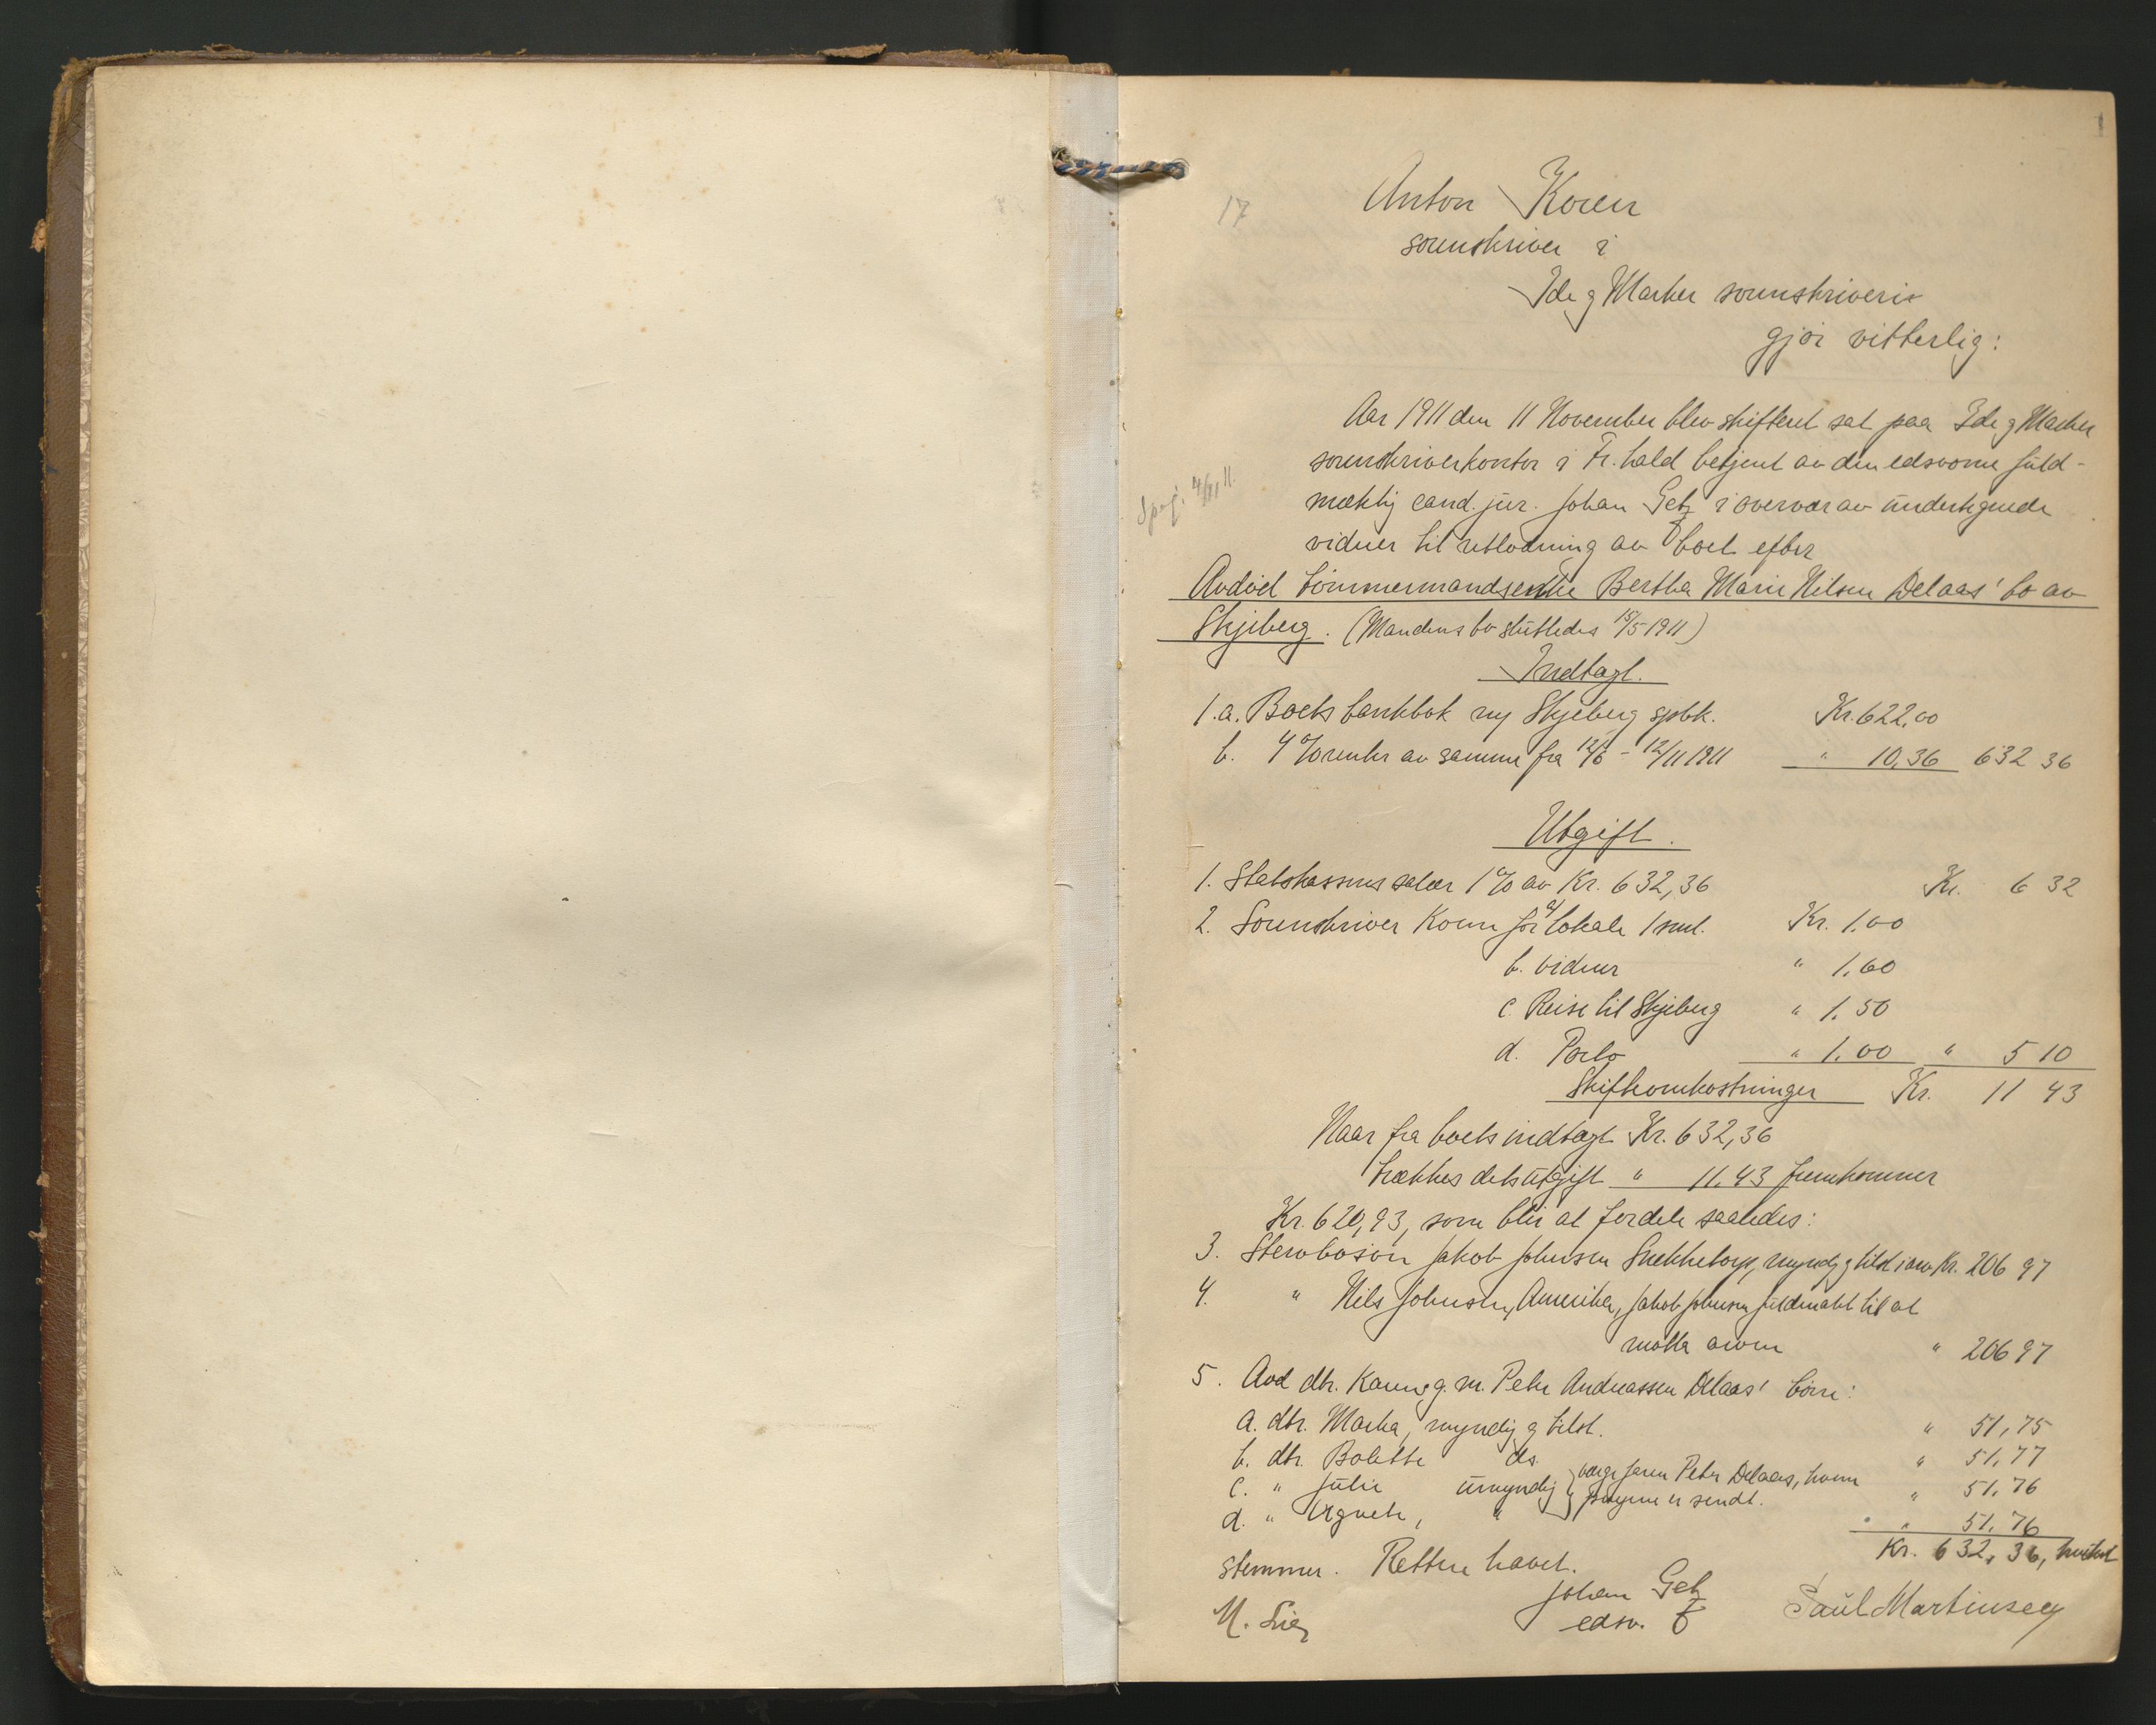 1
17
Anton Koren
sorenskriver i
Ide og Marker sorenskriveri
gjør vitterlig:
Aar 1911 den 11 November blev skifteret sat paa Ide og Marker
sorenskriverkontor i Fr.hald betjent av den edsvorne fuld-
mektig cand. jur. Johan Getz i overvær av undertegnede
vidner til utlodning av boet efter
Avdød tømmermandsenke Bertha Marie Nilsen Delaas' bo av
Skjeberg. (Mandens bo sluttedes 15/5 1911)
Indtægt.
1.a. Boets bankbok Skjeberg spbk. Kr. 622,00
b. 4% renter av samme fra 12/6 - 12/11 1911 " 10,36 632 36
Utgift.
1. Statskassens salær 1% av Kr. 632,36 Kr. 6 32
2. Sorenskriver Koren for a/ lokale 1 sml. Kr. 1.00
b. vidner " 1.60
c. Reise til Skjeberg " 1.50
d. Porto " 1.00 " 5 10
Skifteomkostninger Kr. 11 43
Naar fra boets indtægt Kr. 632,36
trækkes dets utgift " 11.43 fremkommer
Kr. 620,93, som blir at fordele saaledes:
3. Stervbosøn Jakob Johnsen Snekketorp, myndig og tilst. i arv Kr. 206 97
4. " Nils Johnsen, Amerika, Jakob Johnsen fuldmakt til at
motta arven " 206 97
5. Avd dtr. Karen g. m. Peter Andreassen Delaas' børn:
a. dtr. Marta, myndig og tilst. " 51,75
b. dtr. Bolette ds. " 51,77
c. " Julie umyndig } værge faren Peter Delaas, hvem " 51.76
d. " Agnete, " pengene er sendt. " 51.76
Kr. 632,36, hvilket
stemmer. Retten hævet.
Johan Getz
edsv. f
N. Lie
Paul Martinsen